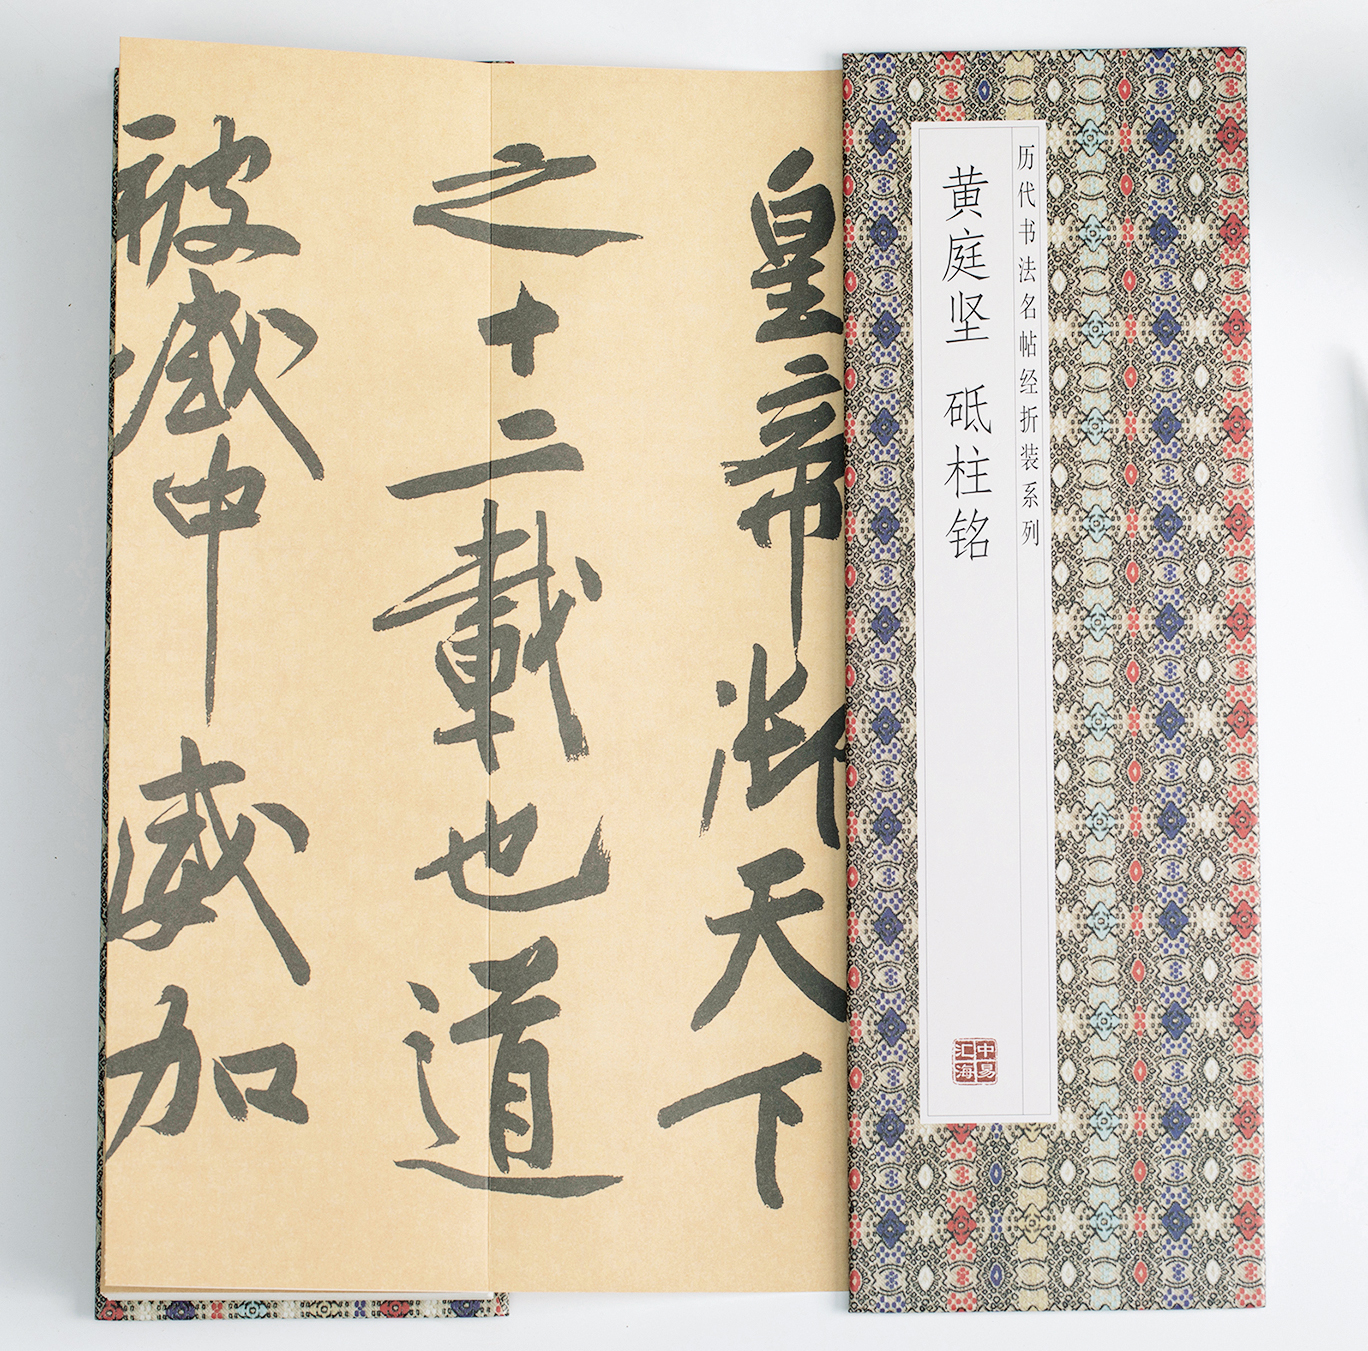 历代书法名帖经折装系列
黄庭坚 砥柱铭
中易汇海
皇帝御天下
之十二載也道
被域中威加